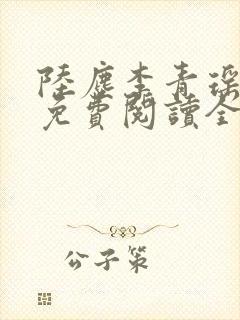 陸塵李青瑤
免費閱讀全
公子策